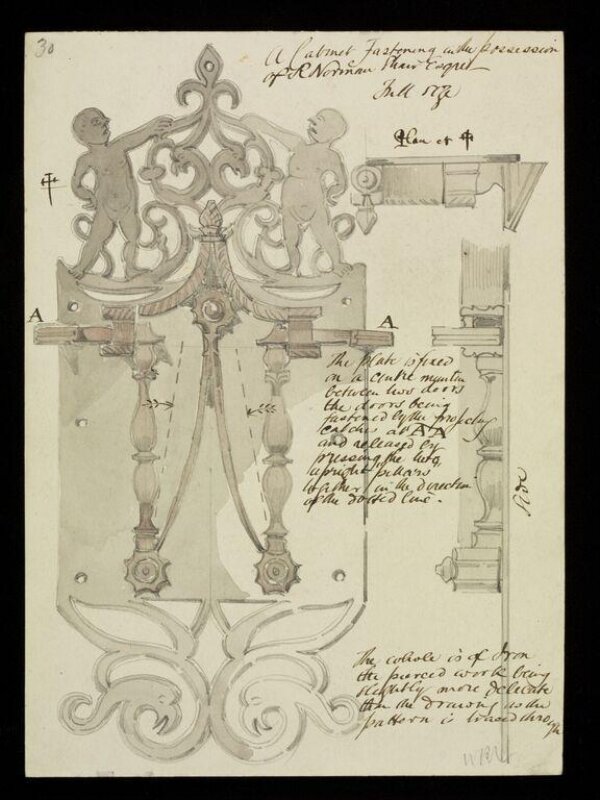 30
A Cabinet Fastening in the possession
of R Norman Shaw Esqre
Full size
Plan at
A
A
The plate is fixed
on a centre muntin
between two doors
the doors being
fastened by the projecting
catches at A A
and released by
pressing the two
upright pillars
together in the direction
of the dotted line.
Side
The whole is of Iron
the pierced work being
slightly more delicate
than the drawing as the
pattern is traced through